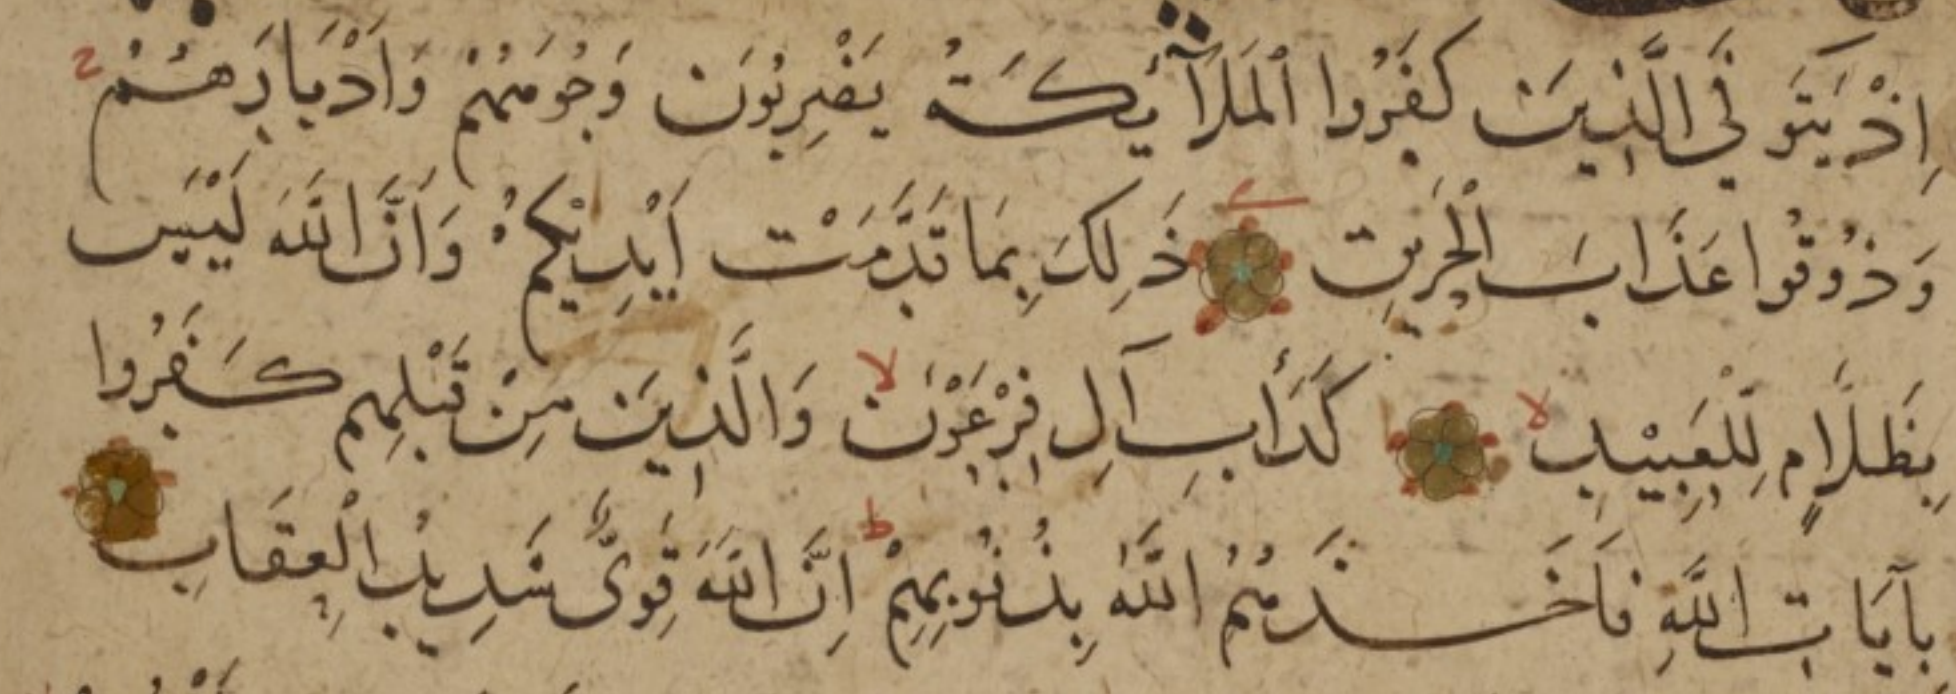 اِذْ يَتَوَفَّي الَّذِينَ كَفَرُوا الْمَلَآئِكَةُ يَضْرِبُونَ وُجُوهَهُمْ وَاَدْبَارَهُمْ
وَذُوقُوا عَذَابَ الْحَرِيقِ ذَلِكَ بِمَا قَدَّمَتْ اَيْدِيْكُمْ وَاَنَّ اللَّهَ لَيْسَ
بِظَلَّامٍ لِلْعَبِيْدِ لا كَدَأْبِ آلِ فِرْعَوْنَ لا وَالَّذِينَ مِنْ قَبْلِهِمْ كَفَرُوا
بِآيَاتِ اللَّهِ فَاَخَذَهُمُ اللَّهُ بِذُنُوبِهِمْ ط اِنَّ اللَّهَ قَوِيٌّ شَدِيدُ الْعِقَابِ